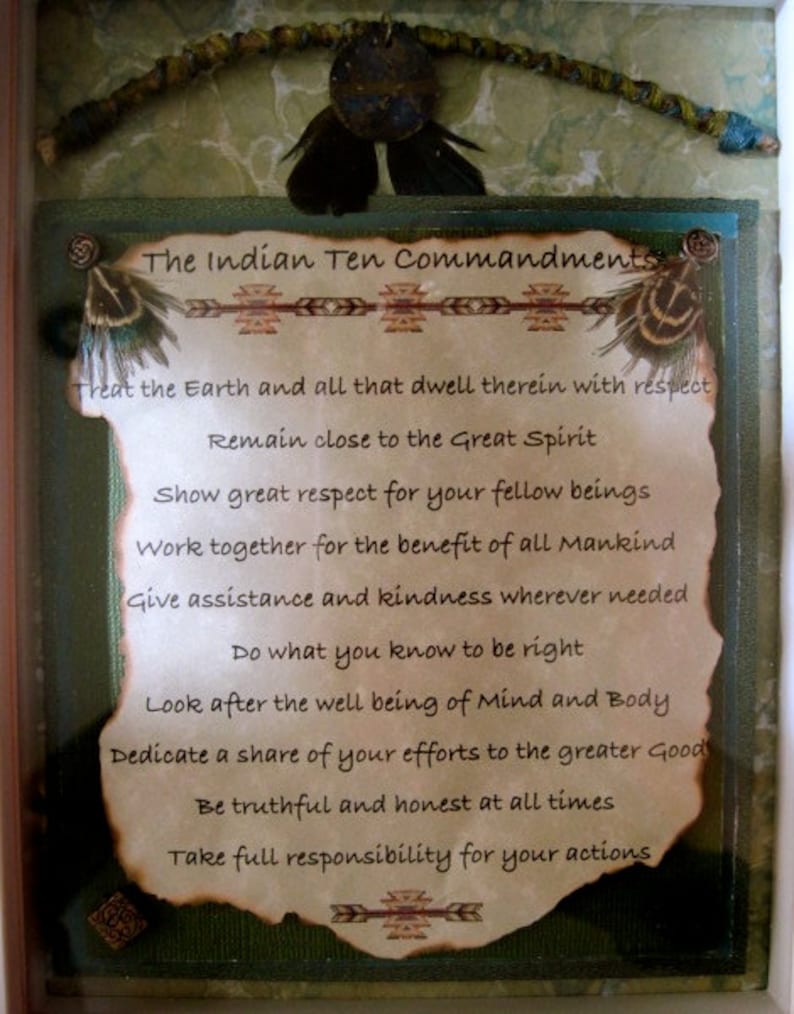 The Indian Ten Commandments
Treat the Earth and all that dwell therein with respect
Remain close to the Great Spirit
Show great respect for your fellow beings
Work together for the benefit of all Mankind
Give assistance and kindness wherever needed
Do what you know to be right
Look after the well being of Mind and Body
Dedicate a share of your efforts to the greater Good
Be truthful and honest at all times
Take full responsibility for your actions